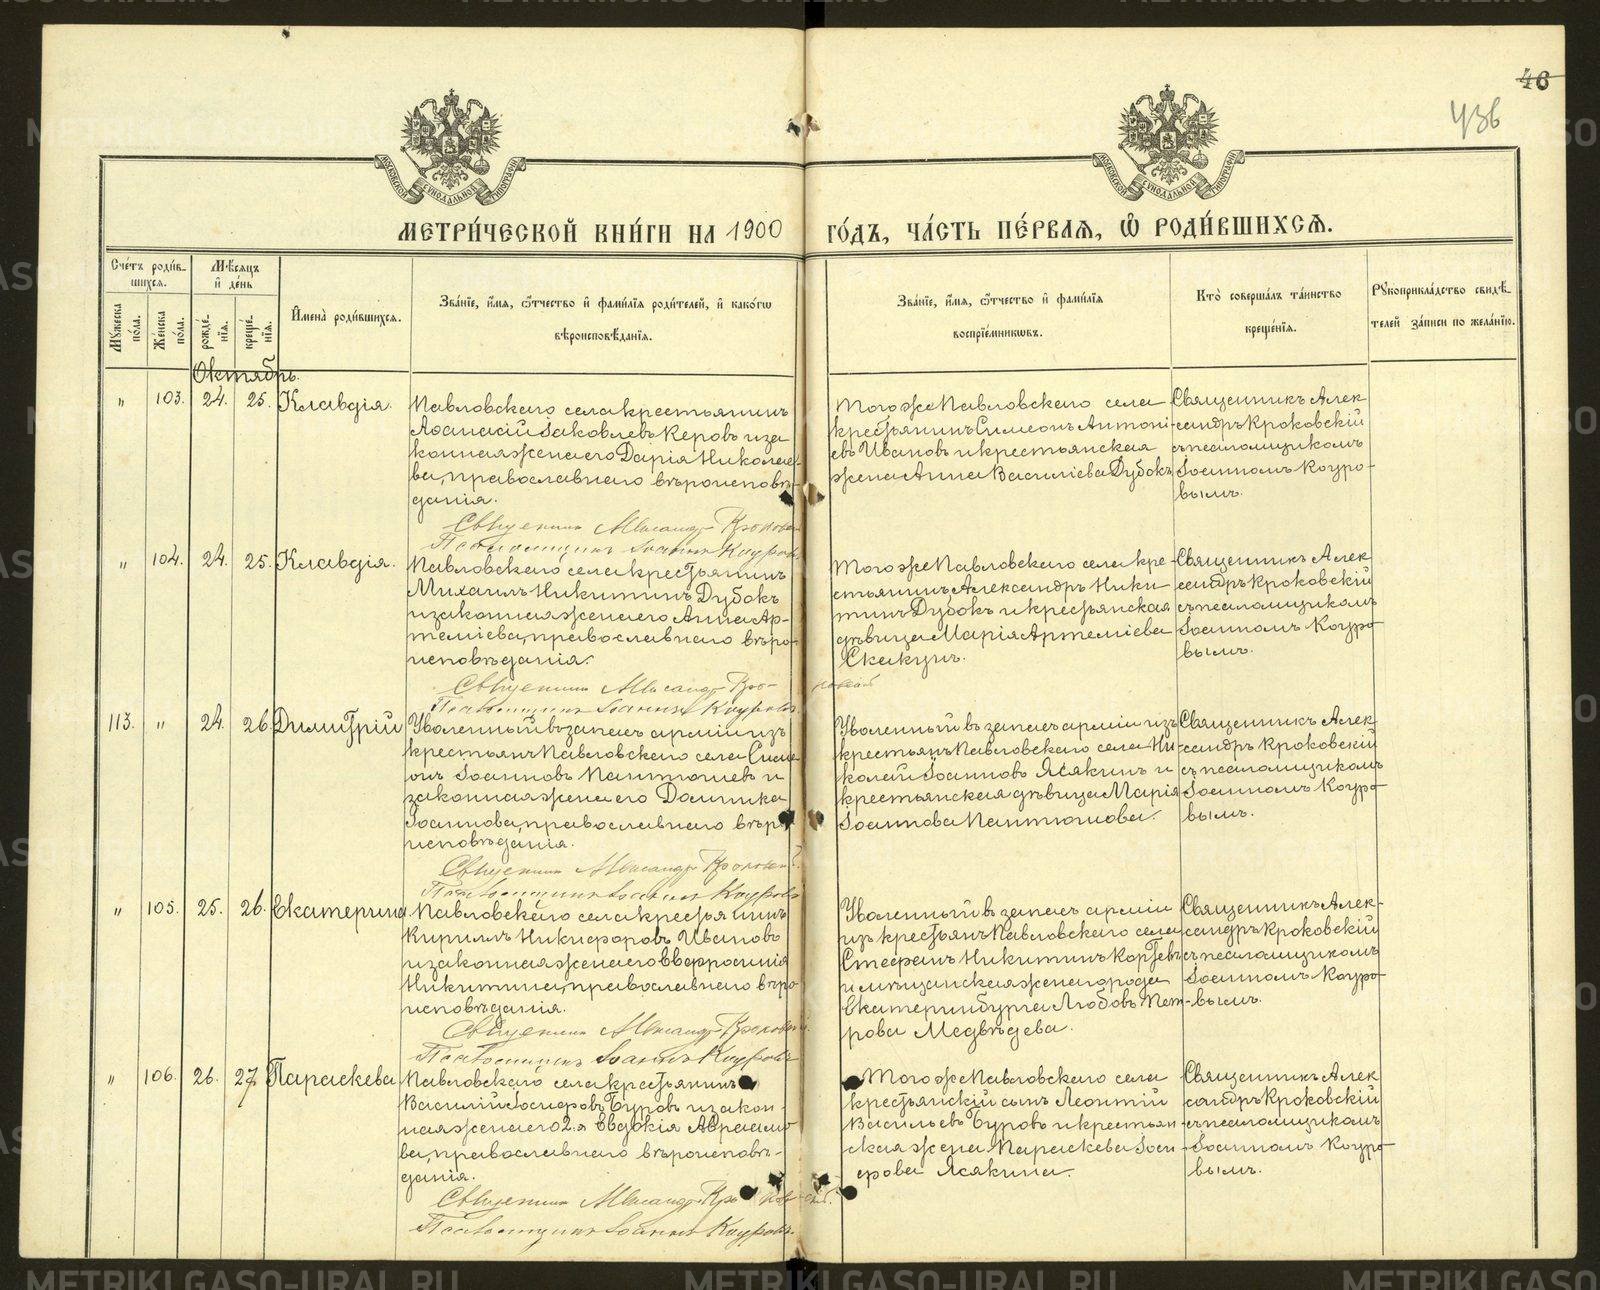 46
436
МОСКОВСКОЙ СѴНОДАЛЬНОЙ ТИПОГРАФІИ
МОСКОВСКОЙ СѴНОДАЛЬНОЙ ТИПОГРАФІИ
МЕТРИ́ЧЕСКОЙ КНИ́ГИ НА 1900 ГО́ДЪ, ЧА́СТЬ ПЕ́РВАЯ, Ѡ РОДИ́ВШИХСЯ.
Сче́тъ роди́в-
шихся.
Мѣ́сяцъ
и де́нь
Мꙋ́жеска по́ла.
Же́нска по́ла.
рожде́-
нїя.
креще́-
нїя.
И҆мена̀ роди́вшихся.
Зва́нїе, и҆́мя, ѻ҆́тчество и҆ фами́лїя роди́телей, и҆ како́гѡ
вѣроисповѣ́данїя.
Зва́нїе, и҆́мя, ѻ҆́тчество и҆ фами́лїя
воспрїе́мникѡвъ.
Кто̀ соверша́лъ та́инство
креще́нїя.
Рꙋкоприкла́дство свидѣ́-
телей за́писи по жела́нїю.
Октябрь.
„ 103. 24. 25. Клавдія.
Павловскаго села крестьянинъ
Аѳанасій Іаковлевъ Керовъ и за
конная жена его Дарія Николае-
ва, православнаго вѣроисповѣ-
данія.
Священникъ Александръ Кроковскій
Псаломщикъ Іоаннъ Коуровъ
Того же Павловскаго села
крестьянинъ Симеонъ Антоні-
евъ Ивановъ и крестьянская
жена Анна Василіева Дубокъ
Священникъ Алек
сандръ Кроковскій
съ псаломщикомъ
Іоанномъ Коуро-
вымъ.
„ 104. 24. 25. Клавдія.
Павловскаго села крестьянинъ
Михаилъ Никитинъ Дубокъ
и законная жена его Анна Ар-
теміева, православнаго вѣро-
исповѣданія.
Священникъ Александръ Кроковскій
Псаломщикъ Іоаннъ Коуровъ
Того же Павловскаго села кре-
стьянинъ Александръ Ники-
тинъ Дубокъ и крестьянская
дѣвица Марія Артеміева
Скакунъ.
Священникъ Алек-
сандръ Кроковскій
съ псаломщикомъ
Іоанномъ Коуро-
вымъ.
113. „ 24. 26. Димитрій
Уволенный въ запасъ арміи изъ
крестьянъ Павловскаго села Симе
онъ Іоанновъ Пантюшевъ и
законная жена его Домника
Іоаннова, православнаго вѣро
исповѣданія.
Священникъ Александръ Кроковскій
Псаломщикъ Іоаннъ Коуровъ
Уволенный въ запасъ арміи изъ
крестьянъ Павловскаго села Ни-
колай Іоанновъ Ясякинъ и
крестьянская дѣвица Марія
Іоаннова Пантюшова.
Священникъ Алек
сандръ Кроковскій
съ псаломщикомъ
Іоанномъ Коуро-
вымъ.
„ 105. 25. 26. Екатерина
Павловскаго села крестьянинъ
Кириллъ Никифоровъ Ивановъ
и законная жена его Евфросинія
Никитина, православнаго вѣро
исповѣданія.
Священникъ Александръ Кроковскій
Псаломщикъ Іоаннъ Коуровъ
Уволенный въ запасъ арміи
изъ крестьянъ Павловскаго села
Стефанъ Никитинъ
и мѣщанская жена города
Екатеринбурга Любовь Пет-
рова Медвѣдева.
Священникъ Алек-
сандръ Кроковскій
съ псаломщикомъ
Іоанномъ Коуро-
вымъ.
„ 106. 26. 27. Параскева
Павловскаго села крестьянинъ
Василій Іосифовъ Буровъ и закон-
ная жена его 2-я Евдокія Авраамо
ва, православнаго вѣроисповѣ-
данія.
Священникъ Александръ Кроковскій
Псаломщикъ Іоаннъ Коуровъ
Того же Павловскаго села
крестьянскій сынъ Леонтій
Васильевъ Буровъ и крестьян-
ская жена Параскева Іоси-
фова Ясякина.
Священникъ Алек
сандръ Кроковскій
съ псаломщикомъ
Іоанномъ Коуро-
вымъ.
METRIKI.GASO-URAL.RU